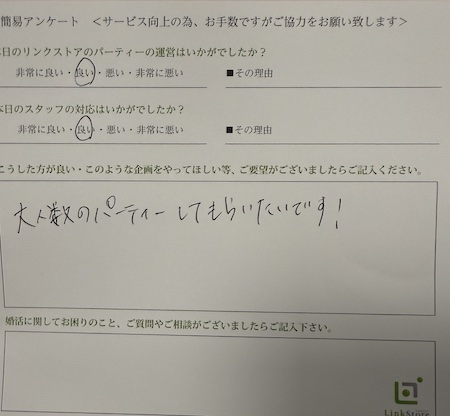 簡易アンケート <サービス向上の為、お手数ですがご協力をお願い致します>
本日のリンクストアのパーティーの運営はいかがでしたか?
非常に良い・良い・悪い・非常に悪い ■その理由
本日のスタッフの対応はいかがでしたか?
非常に良い・良い・悪い・非常に悪い ■その理由
こうした方が良い・このような企画をやってほしい等、ご要望がございましたらご記入ください。
大人数のパーティーしてもらいたいです!
婚活に関してお困りのこと、ご質問やご相談がございましたらご記入下さい。
LinkStore